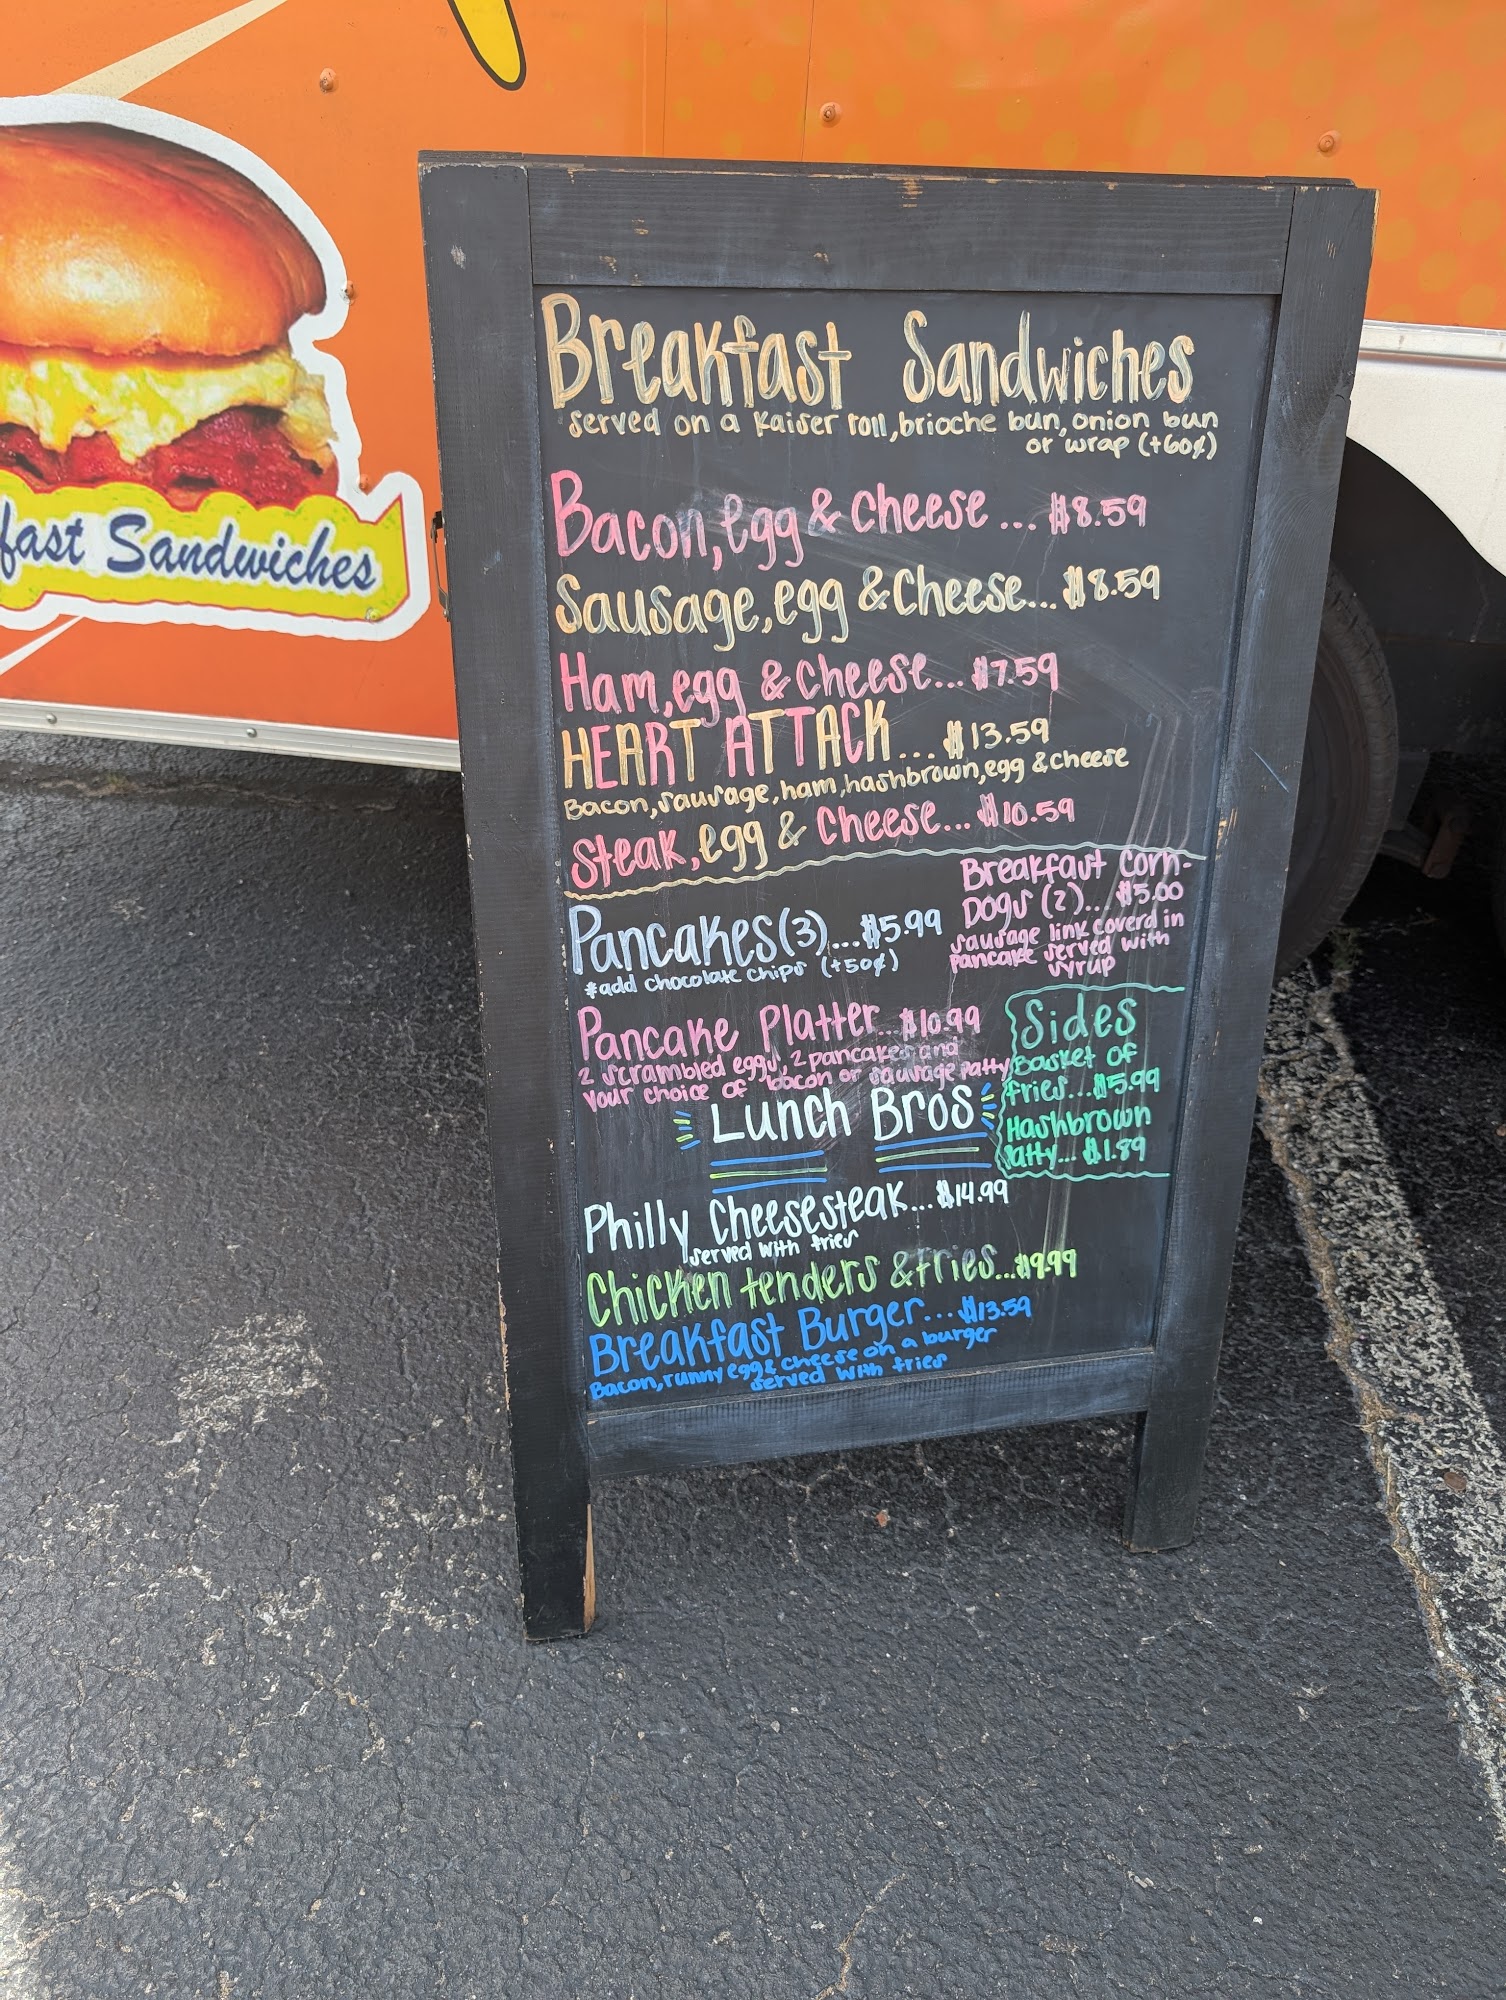 fast Sandwiches
Breakfast Sandwiches
served on a Kaiser roll, brioche bun, onion bun
or wrap (+60¢)
Bacon, egg & cheese... $8.59
Sausage, egg & Cheese... $8.59
Ham, egg & cheese... $7.59
HEART ATTACK... $13.59
Bacon, sausage, ham, hashbrown, egg & cheese
Steak, egg & Cheese... $10.59
Pancakes (3)... $5.99
*add chocolate chips (+50¢)
Breakfast Corn-
Dogs (2)... $5.00
sausage link coverd in
pancake served with
syrup
Pancake Platter... $10.99
2 scrambled eggs, 2 pancakes and
your choice of bacon or sausage patty
Sides
Basket of
fries... $5.99
Hashbrown
Patty... $1.89
Lunch Bros
Philly Cheesesteak... $14.99
served with fries
Chicken tenders & fries... $9.99
Breakfast Burger... $13.59
Bacon, runny egg & cheese on a burger
served with fries